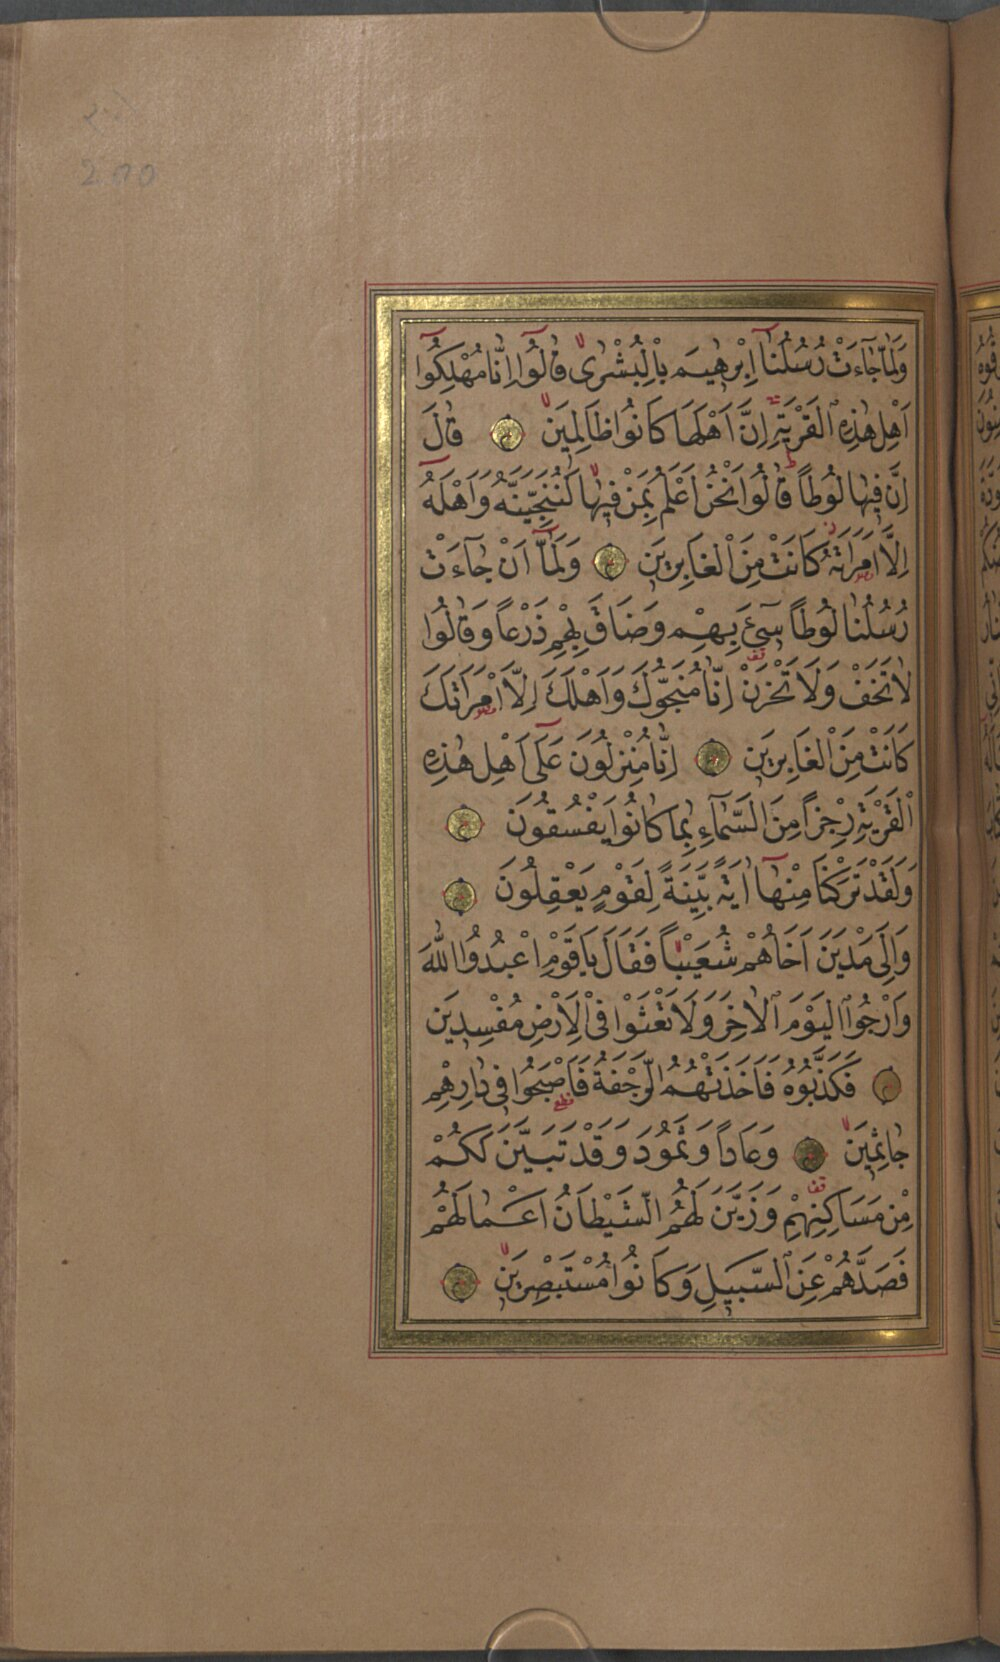 200
وَلَمَّا جَآءَتْ رُسُلُنَآ اِبْرٰهِيمَ بِالْبُشْرٰى قَالُوٓا اِنَّا مُهْلِكُوٓا
اَهْلِ هٰذِهِ الْقَرْيَةِ اِنَّ اَهْلَهَا كَانُوا ظَالِمِينَ ۝ قَالَ
اِنَّ فِيهَا لُوطاً قَالُوا نَحْنُ اَعْلَمُ بِمَنْ فِيهَا لَنُنَجِّيَنَّهُ وَاَهْلَهُٓ
اِلَّا امْرَاَتَهُ كَانَتْ مِنَ الْغَابِرِينَ ۝ وَلَمَّآ اَنْ جَآءَتْ
رُسُلُنَا لُوطاً سِٓيءَ بِهِمْ وَضَاقَ بِهِمْ ذَرْعاً وَقَالُوا
لَا تَخَفْ وَلَا تَحْزَنْ اِنَّا مُنَجُّوكَ وَاَهْلَكَ اِلَّا امْرَاَتَكَ
كَانَتْ مِنَ الْغَابِرِينَ ۝ اِنَّا مُنْزِلُونَ عَلٰٓى اَهْلِ هٰذِهِ
الْقَرْيَةِ رِجْزاً مِنَ السَّمَآءِ بِمَا كَانُوا يَفْسُقُونَ ۝
وَلَقَدْ تَرَكْنَا مِنْهَآ اٰيَةً بَيِّنَةً لِقَوْمٍ يَعْقِلُونَ ۝
وَاِلٰى مَدْيَنَ اَخَاهُمْ شُعَيْباً فَقَالَ يَا قَوْمِ اعْبُدُوا اللّٰهَ
وَارْجُوا الْيَوْمَ الْاٰخِرَ وَلَا تَعْثَوْا فِى الْاَرْضِ مُفْسِدِينَ
۝ فَكَذَّبُوهُ فَاَخَذَتْهُمُ الرَّجْفَةُ فَاَصْبَحُوا فِى دَارِهِمْ
جَاثِمِينَ ۝ وَعَاداً وَثَمُودَ وَقَدْ تَبَيَّنَ لَكُمْ
مِنْ مَسَاكِنِهِمْ وَزَيَّنَ لَهُمُ الشَّيْطَانُ اَعْمَالَهُمْ
فَصَدَّهُمْ عَنِ السَّبِيلِ وَكَانُوا مُسْتَبْصِرِينَ ۝